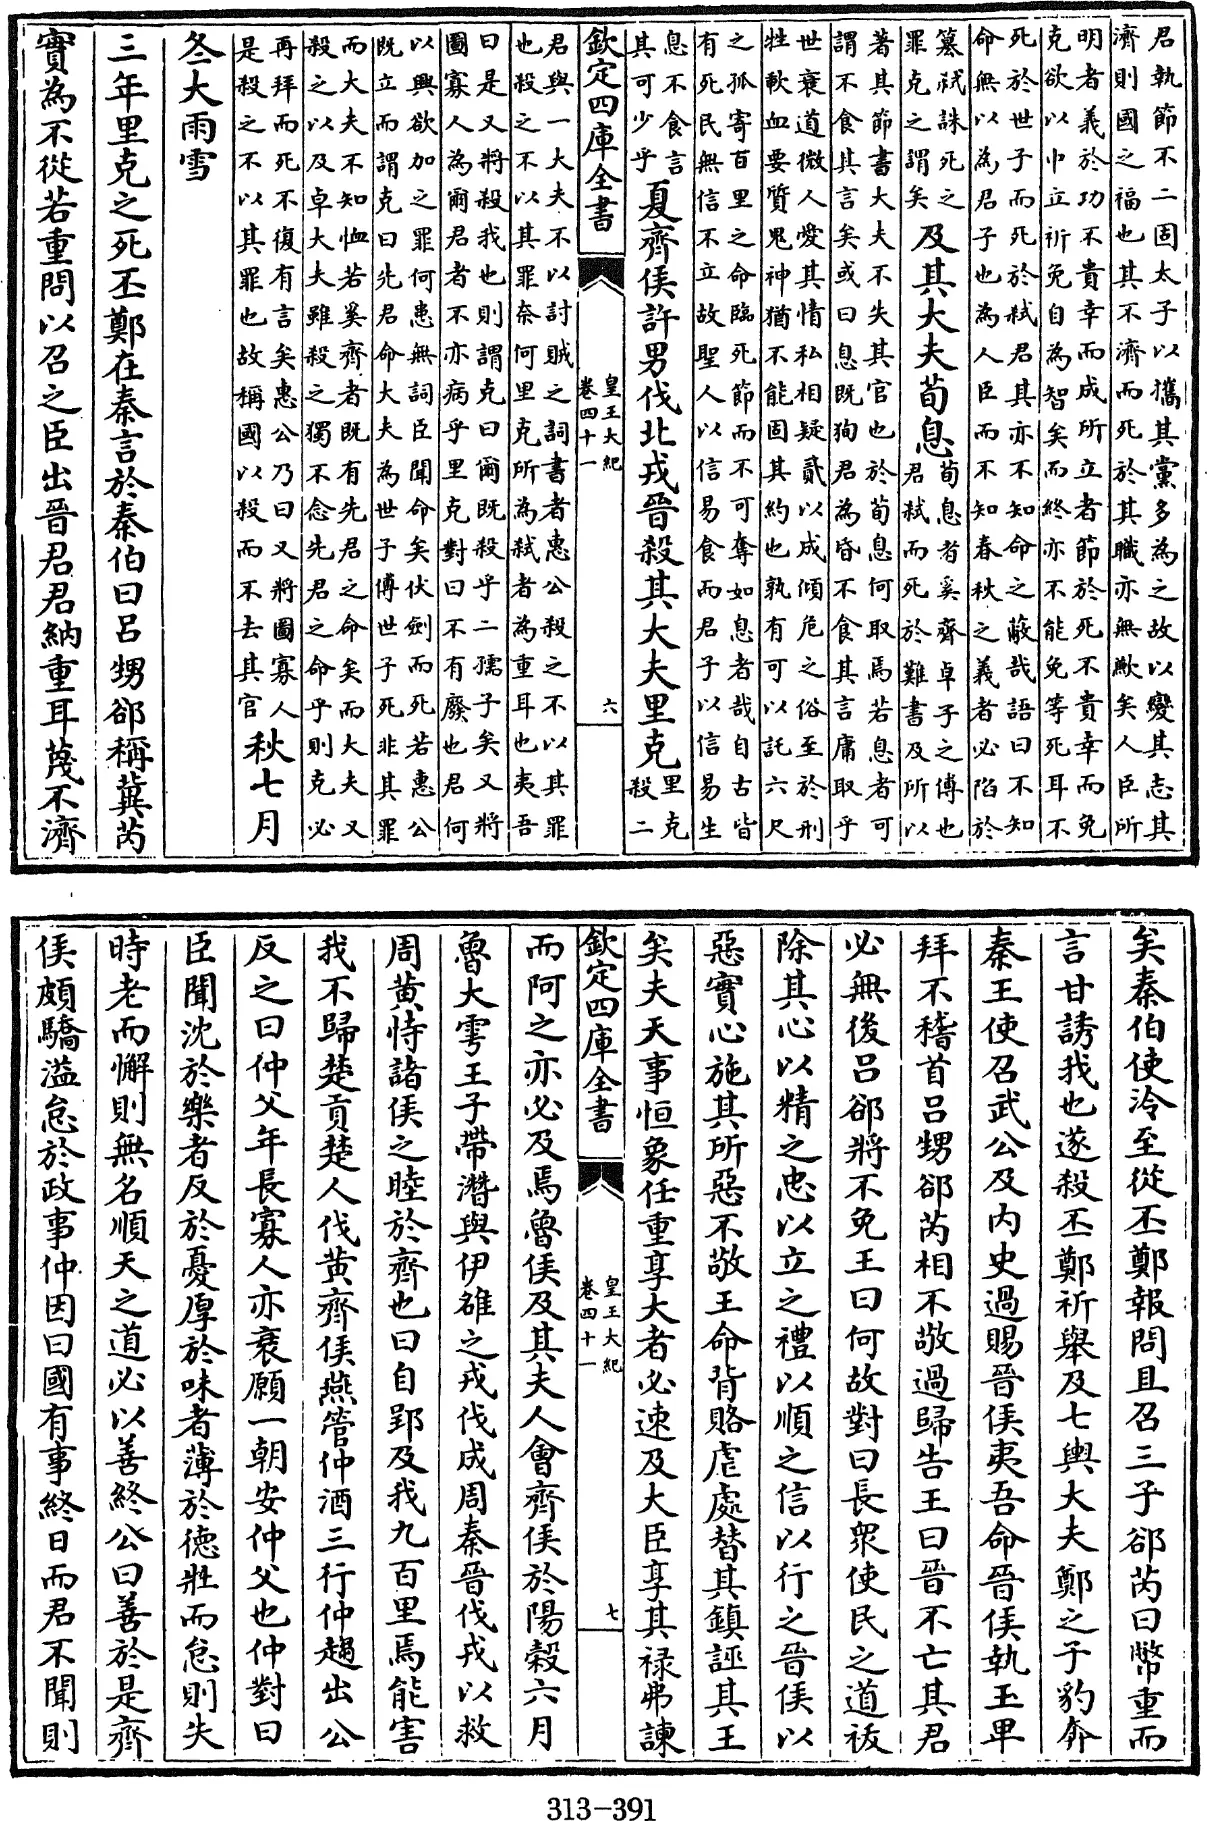 君執節不二固太子以攜其黨多為之故以變其志其
濟則國之福也其不濟而死於其職亦無歉矣人臣所
明者義於功不貴幸而成所立者節於死不貴幸而免
克欲以中立祈免自為智矣而終亦不能免等死耳不
死於世子而死於弑君其亦不知命之蔽哉語曰不知
命無以為君子也為人臣而不知春秋之義者必陷於
簒弑誅死之
罪克之謂矣
及其大夫荀息
荀息者奚齊卓子之傅也
君弑而死於難書及所以
著其節書大夫不失其官也於荀息何取焉若息者可
謂不食其言矣或曰息既狥君為昏不食其言庸取乎
世衰道微人愛其情私相疑貳以成傾危之俗至於刑
牲歃血要質鬼神猶不能固其約也孰有可以託六尺
之孤寄百里之命臨死節而不可奪如息者哉自古皆
有死民無信不立故聖人以信易食而君子以信易生
息不食言
其可少乎
夏齊侯許男伐北戎晉殺其大夫里克
里克
殺二
欽定四庫全書
皇王大紀
卷四十一
六
君與一大夫不以討賊之詞書者惠公殺之不以其罪
也殺之不以其罪奈何里克所為弑者為重耳也夷吾
曰是又將殺我也則謂克曰爾既殺乎二孺子矣又將
圖寡人為爾君者不亦病乎里克對曰不有廢也君何
以興欲加之罪何患無詞臣聞命矣伏劍而死若惠公
既立而謂克曰先君命大夫為世子傅世子死非其罪
而大夫不知恤若奚齊者既有先君之命矣而大夫又
殺之以及卓大夫雖殺之獨不念先君之命乎則克必
再拜而死不復有言矣惠公乃曰又將圖寡人
是殺之不以其罪也故稱國以殺而不去其官
秋七月
冬大雨雪
三年里克之死丕鄭在秦言於秦伯曰呂甥郤稱冀芮
實為不從若重問以召之臣出晉君君納重耳蔑不濟
矣秦伯使泠至從丕鄭報問且召三子郤芮曰幣重而
言甘誘我也遂殺丕鄭祈舉及七輿大夫鄭之子豹奔
秦王使召武公及內史過賜晉侯夷吾命晉侯執玉卑
拜不稽首呂甥郤芮相不敬過歸告王曰晉不亡其君
必無後呂郤將不免王曰何故對曰長衆使民之道祓
除其心以精之忠以立之禮以順之信以行之晉侯以
惡實心施其所惡不敬王命背賂虐處替其鎮誣其王
矣夫天事恒象任重享大者必速及大臣享其禄弗諫
欽定四庫全書
皇王大紀
卷四十一
七
而阿之亦必及焉魯侯及其夫人會齊侯於陽穀六月
魯大雩王子帶濳與伊雒之戎伐成周秦晉伐戎以救
周黄恃諸侯之睦於齊也曰自郢及我九百里焉能害
我不歸楚貢楚人伐黄齊侯燕管仲酒三行仲趨出公
反之曰仲父年長寡人亦衰願一朝安仲父也仲對曰
臣聞沈於樂者反於憂厚於味者薄於德壯而怠則失
時老而懈則無名順天之道必以善終公曰善於是齊
侯頗驕溢怠於政事仲因曰國有事終日而君不聞則
313-391